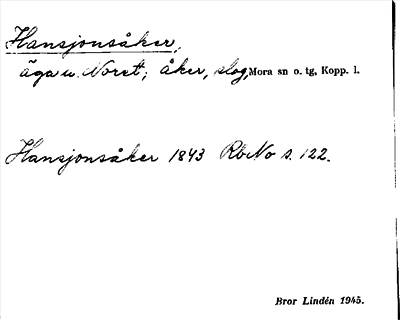 Hansjonsåker,
äga u. Noret; åker, slog, Mora sn o. tg, Kopp. l.
Hansjonsåker 1843 RbNo s. 122.
Bror Lindén 1945.